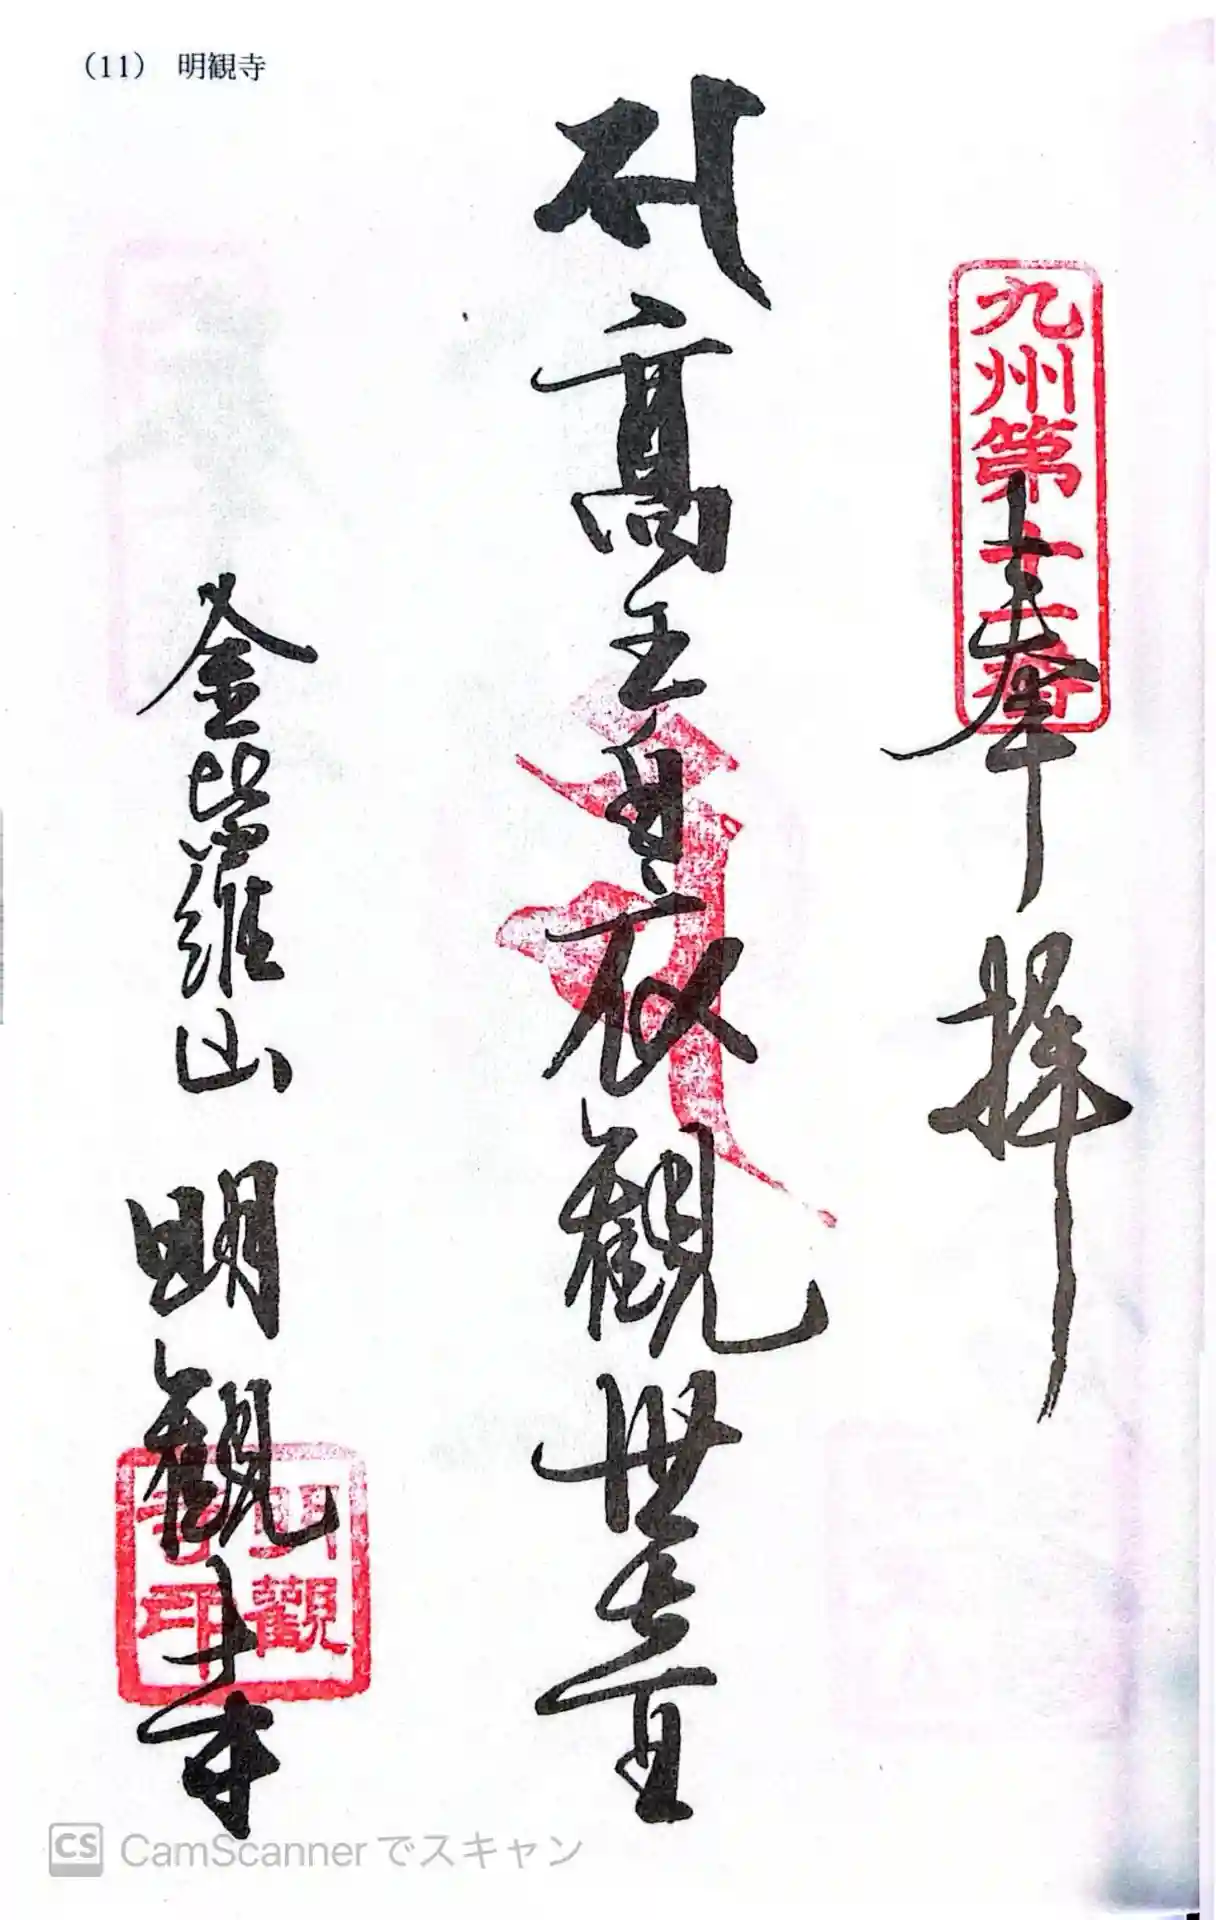 (11) 明観寺
九州第十一番
奉拝
高王白衣観世音
金毘羅山 明観寺
明觀寺印
CS CamScannerでスキャン